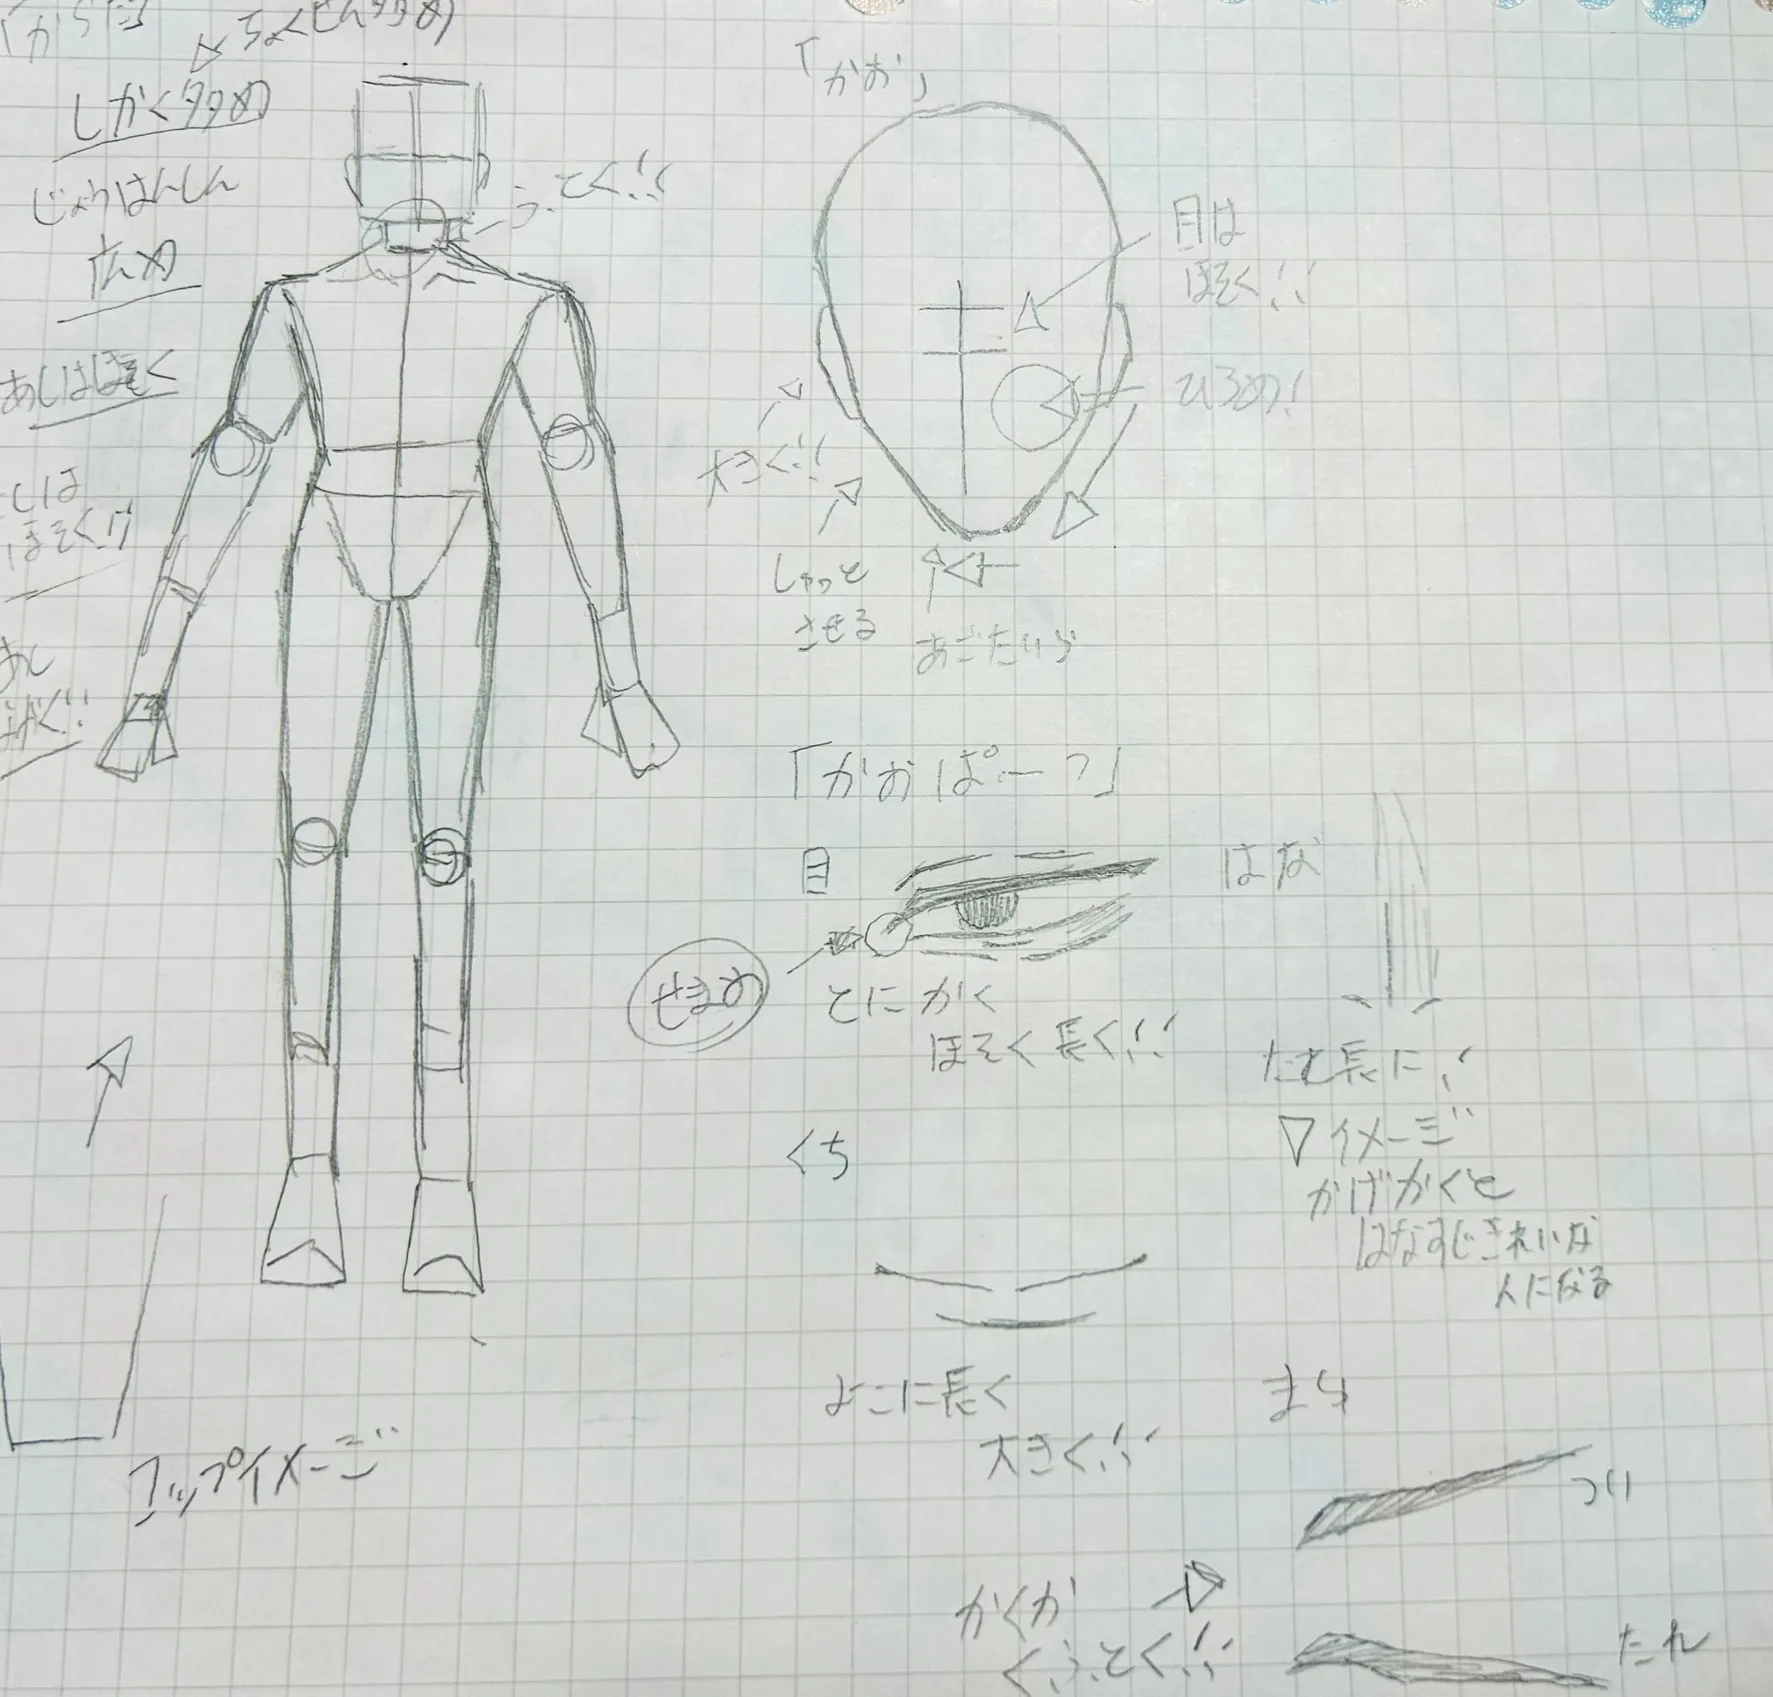 「からだ
ちょくせん多め
しかく多め
じょうはんしん
広め
ふとく!!
ほそく!!
「かお」
目は
ほそく!!
ひろめ!
大きく!!
しゅっと
させる
あごたいら
「かおぱーつ」
目
せまめ
とにかく
ほそく長く!!
はな
たて長に!!
▽イメージ
かげかくと
はなすじきれいな
人になる
くち
よこに長く
大きく!!
アップイメージ
まゆ
つり
かくか
くふとく!!
たれ